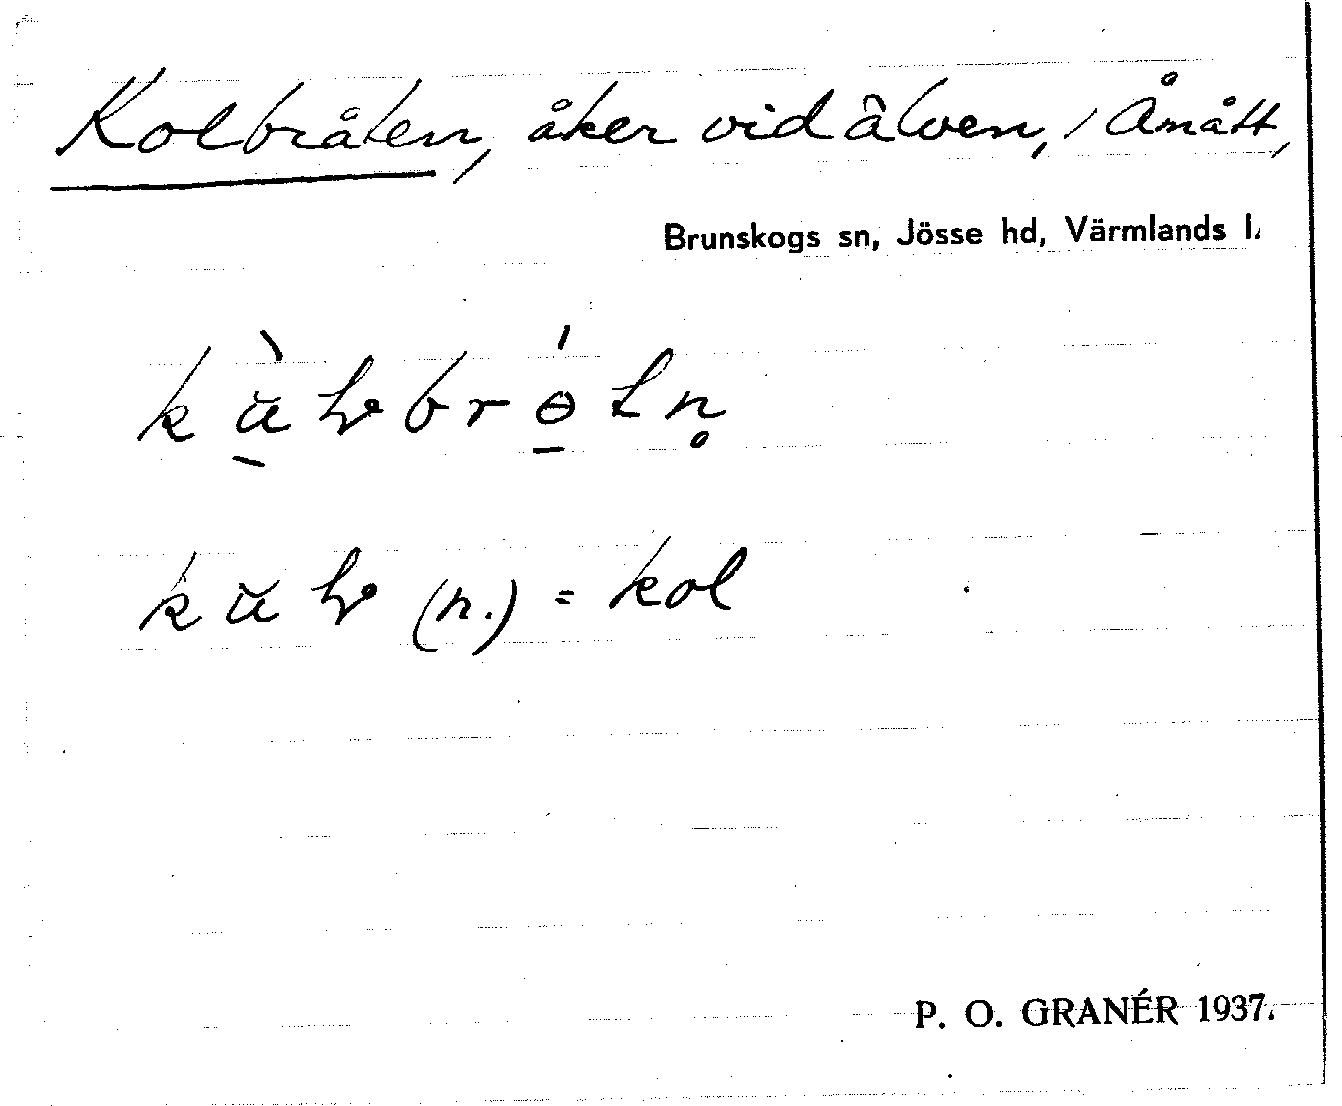 Kolbråten, åker vid älven, / Åmått,
Brunskogs sn, Jösse hd, Värmlands l.
(n.) = kol
P. O. GRANÉR 1937.